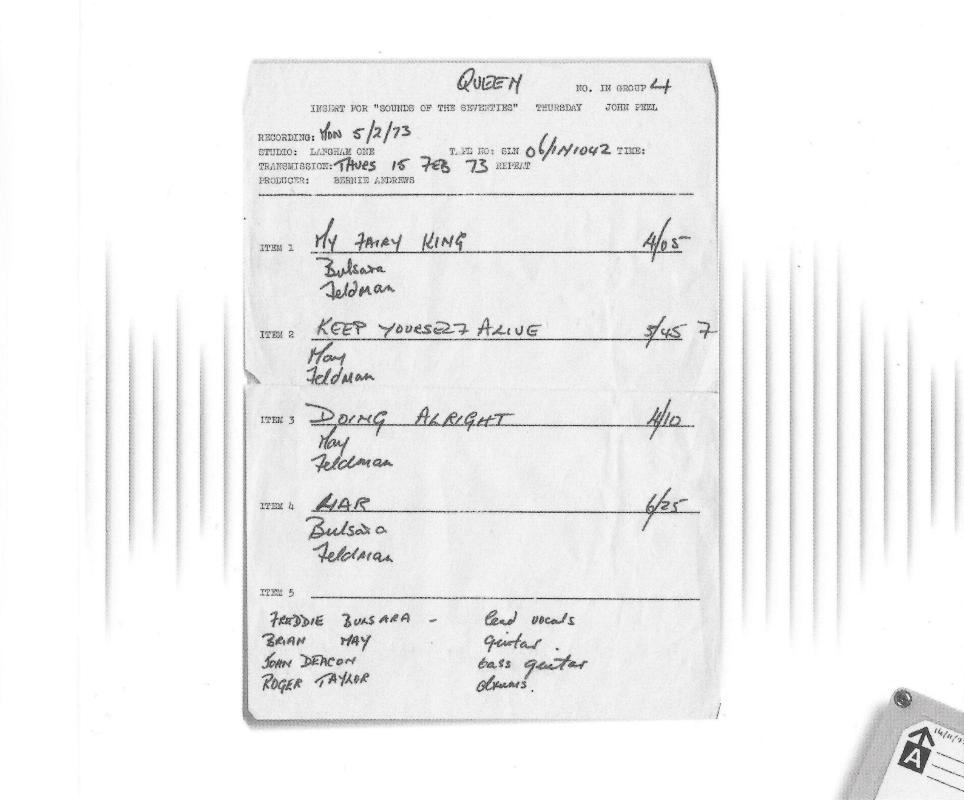 QUEEN
NO. IN GROUP 4
INSERT FOR "SOUNDS OF THE SEVENTIES" THURSDAY JOHN PEEL
RECORDING: MON 5/2/73
STUDIO: LANGHAM ONE TAPE NO: SLN 06/1N1042 TIME:
TRANSMISSION: THURS 15 FEB 73 REPEAT
PRODUCER: BERNIE ANDREWS
ITEM 1 MY FAIRY KING 4/05
Bulsara
Feldman
ITEM 2 KEEP YOURSELF ALIVE 3/45
May
Feldman
ITEM 3 DOING ALRIGHT 4/10
May
Feldman
ITEM 4 LIAR 6/25
Bulsara
Feldman
ITEM 5
FREDDIE BULSARA - lead vocals
BRIAN MAY guitar.
JOHN DEACON bass guitar
ROGER TAYLOR drums.
A